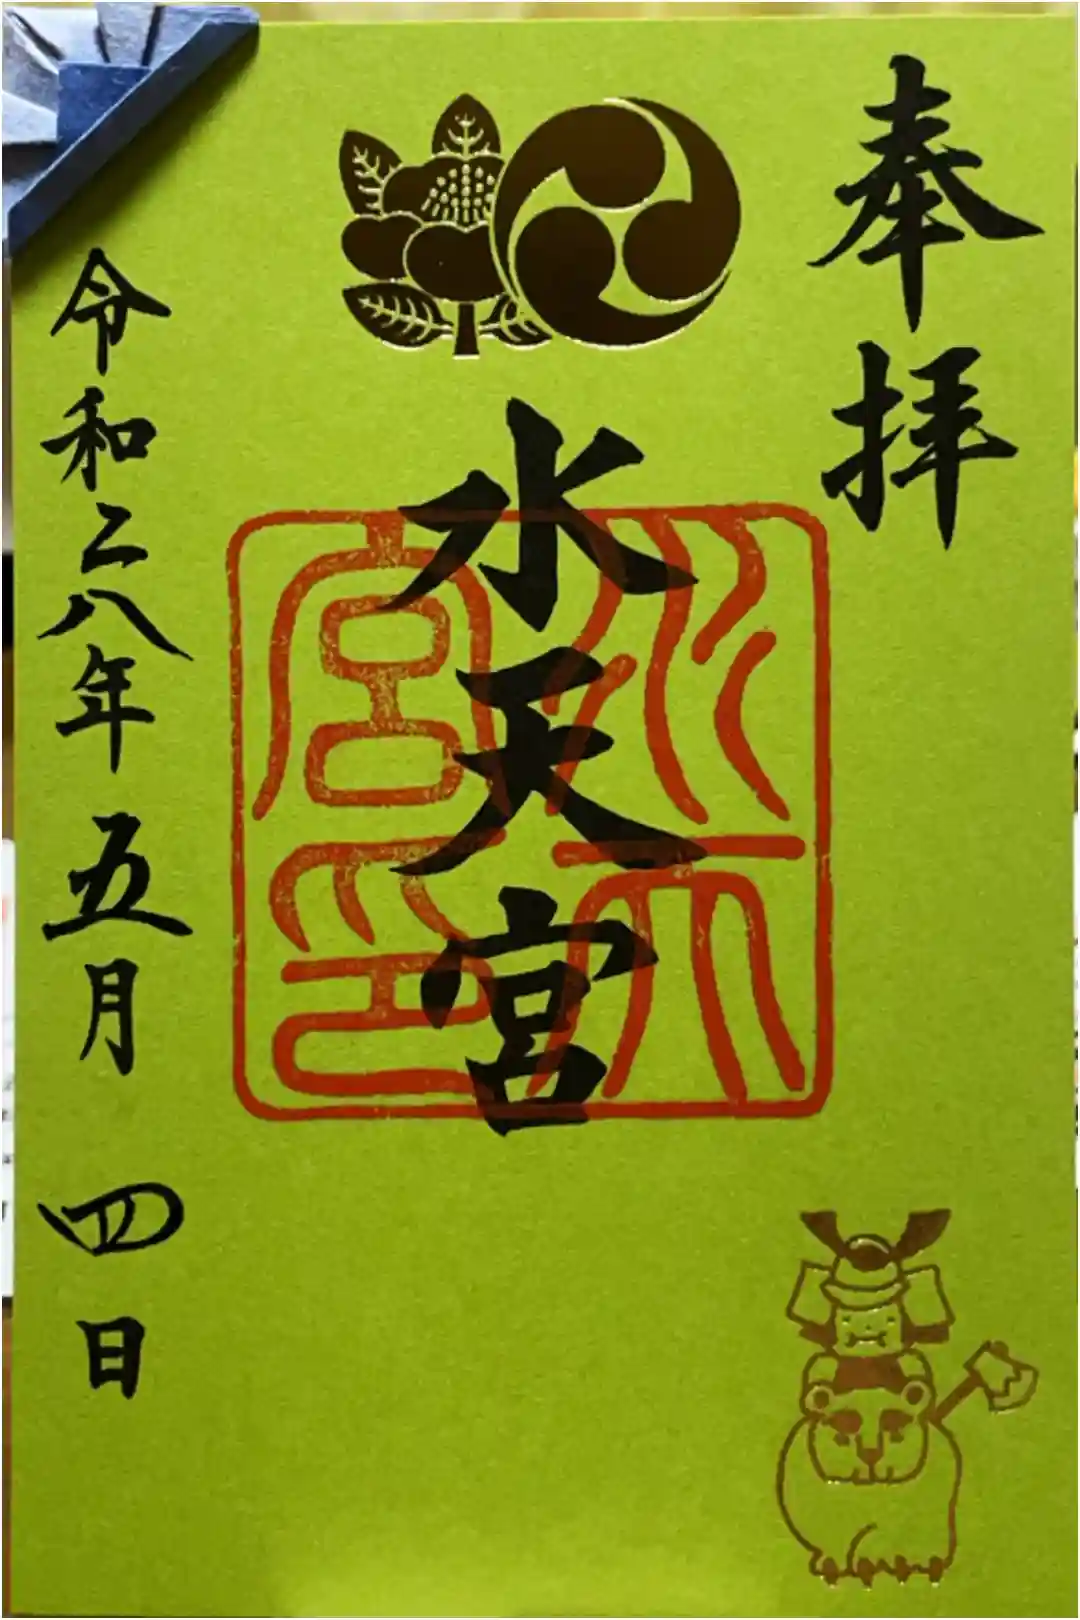 奉拝
水天宮
水天宮印
令和六年五月四日